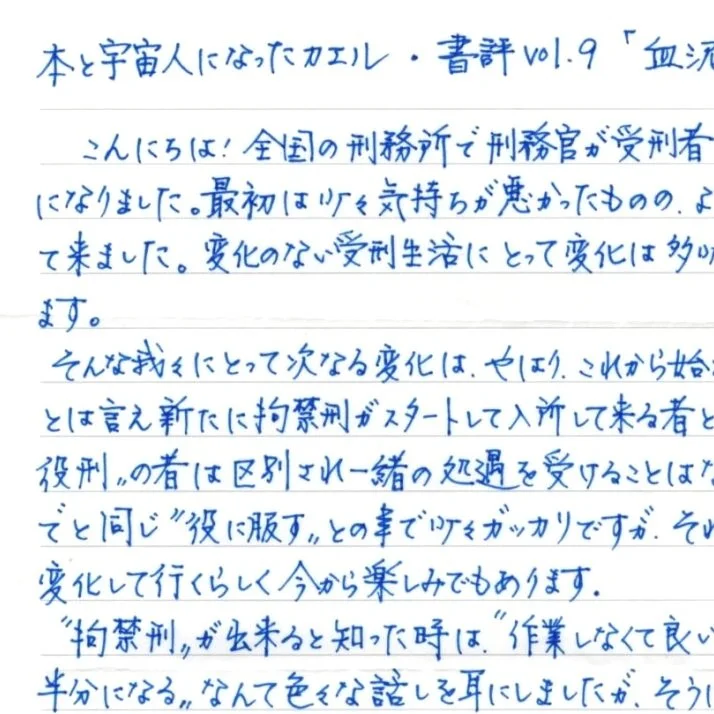 本と宇宙人になったカエル・書評vol.9「血流
こんにちは！全国の刑務所で刑務官が受刑者
になりました。最初は少々気持ちが悪かったものの、よ
て来ました。変化のない受刑生活にとって変化は多少
ます。
そんな我々にとって次なる変化は、やはり、これから始
とは言え新たに拘禁刑がスタートして入所して来る者と
役刑〟の者は区別され一緒の処遇を受けることはな
でと同じ〝役に服す〟との事で少々ガッカリですが、それ
変化して行くらしく今から楽しみでもあります。
〝拘禁刑〟が出来ると知った時は、〝作業しなくて良い
半分になる〟なんて色々な話しを耳にしましたが、そうし